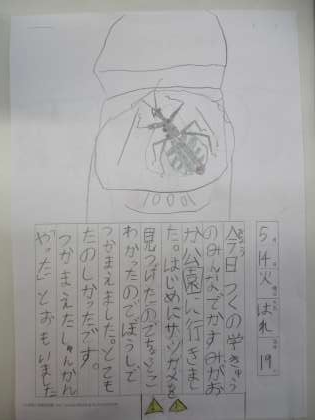 5 14 火 はれ 19
今日つくの学きゅう
のみんなでかすみがお
か公園に行きまし
た。はじめにサシガメを
見つけたのでちょとこ
わかったのでぼうしで
つかまえました。とても
たのしかったです。
つかまえたしゅんかん
「やった」とおもいました